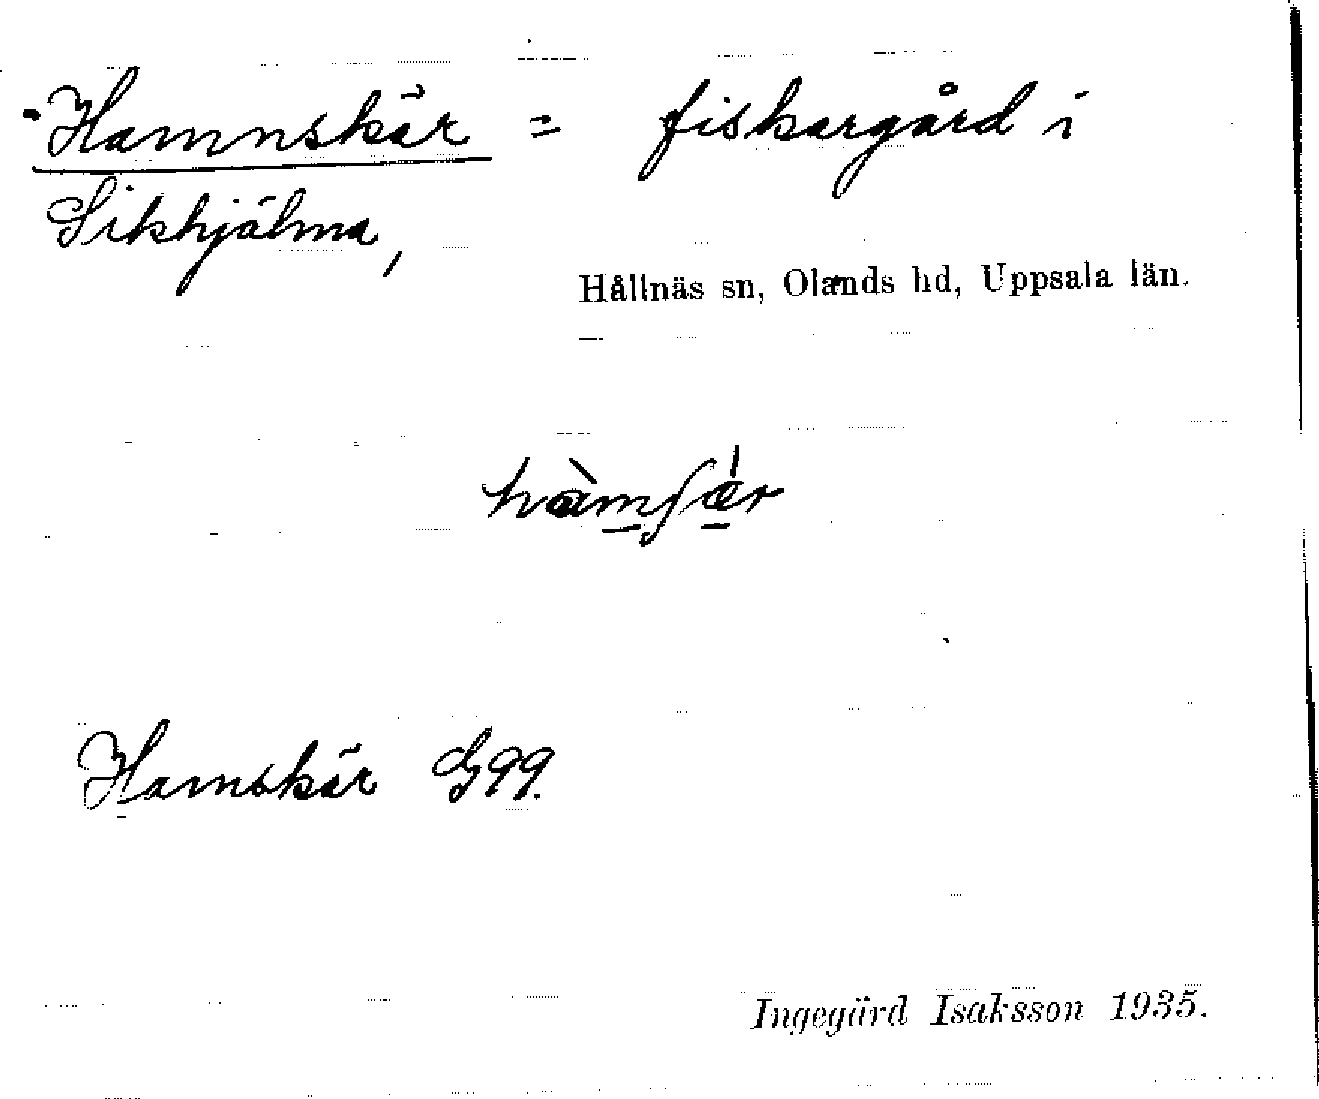 Hamnskär = fiskargård i
Sikhjälma,
Hållnäs sn, Olands hd, Uppsala län.
hàmʃǽr
Hamskär G99.
Ingegärd Isaksson 1935.